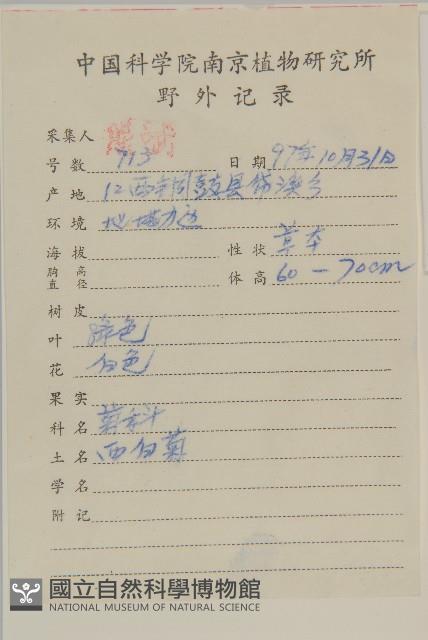 中国科学院南京植物研究所
野外记录
采集人
号数 713 日期 97年10月31日
产地 江西铜鼓县
环境 地塔方边
海拔 性状 草本
胸高直径 体高 60－70cm
树皮
叶 绿色
花 白色
果实
科名 菊科
土名 西白菊
学名
附记
國立自然科學博物館
NATIONAL MUSEUM OF NATURAL SCIENCE